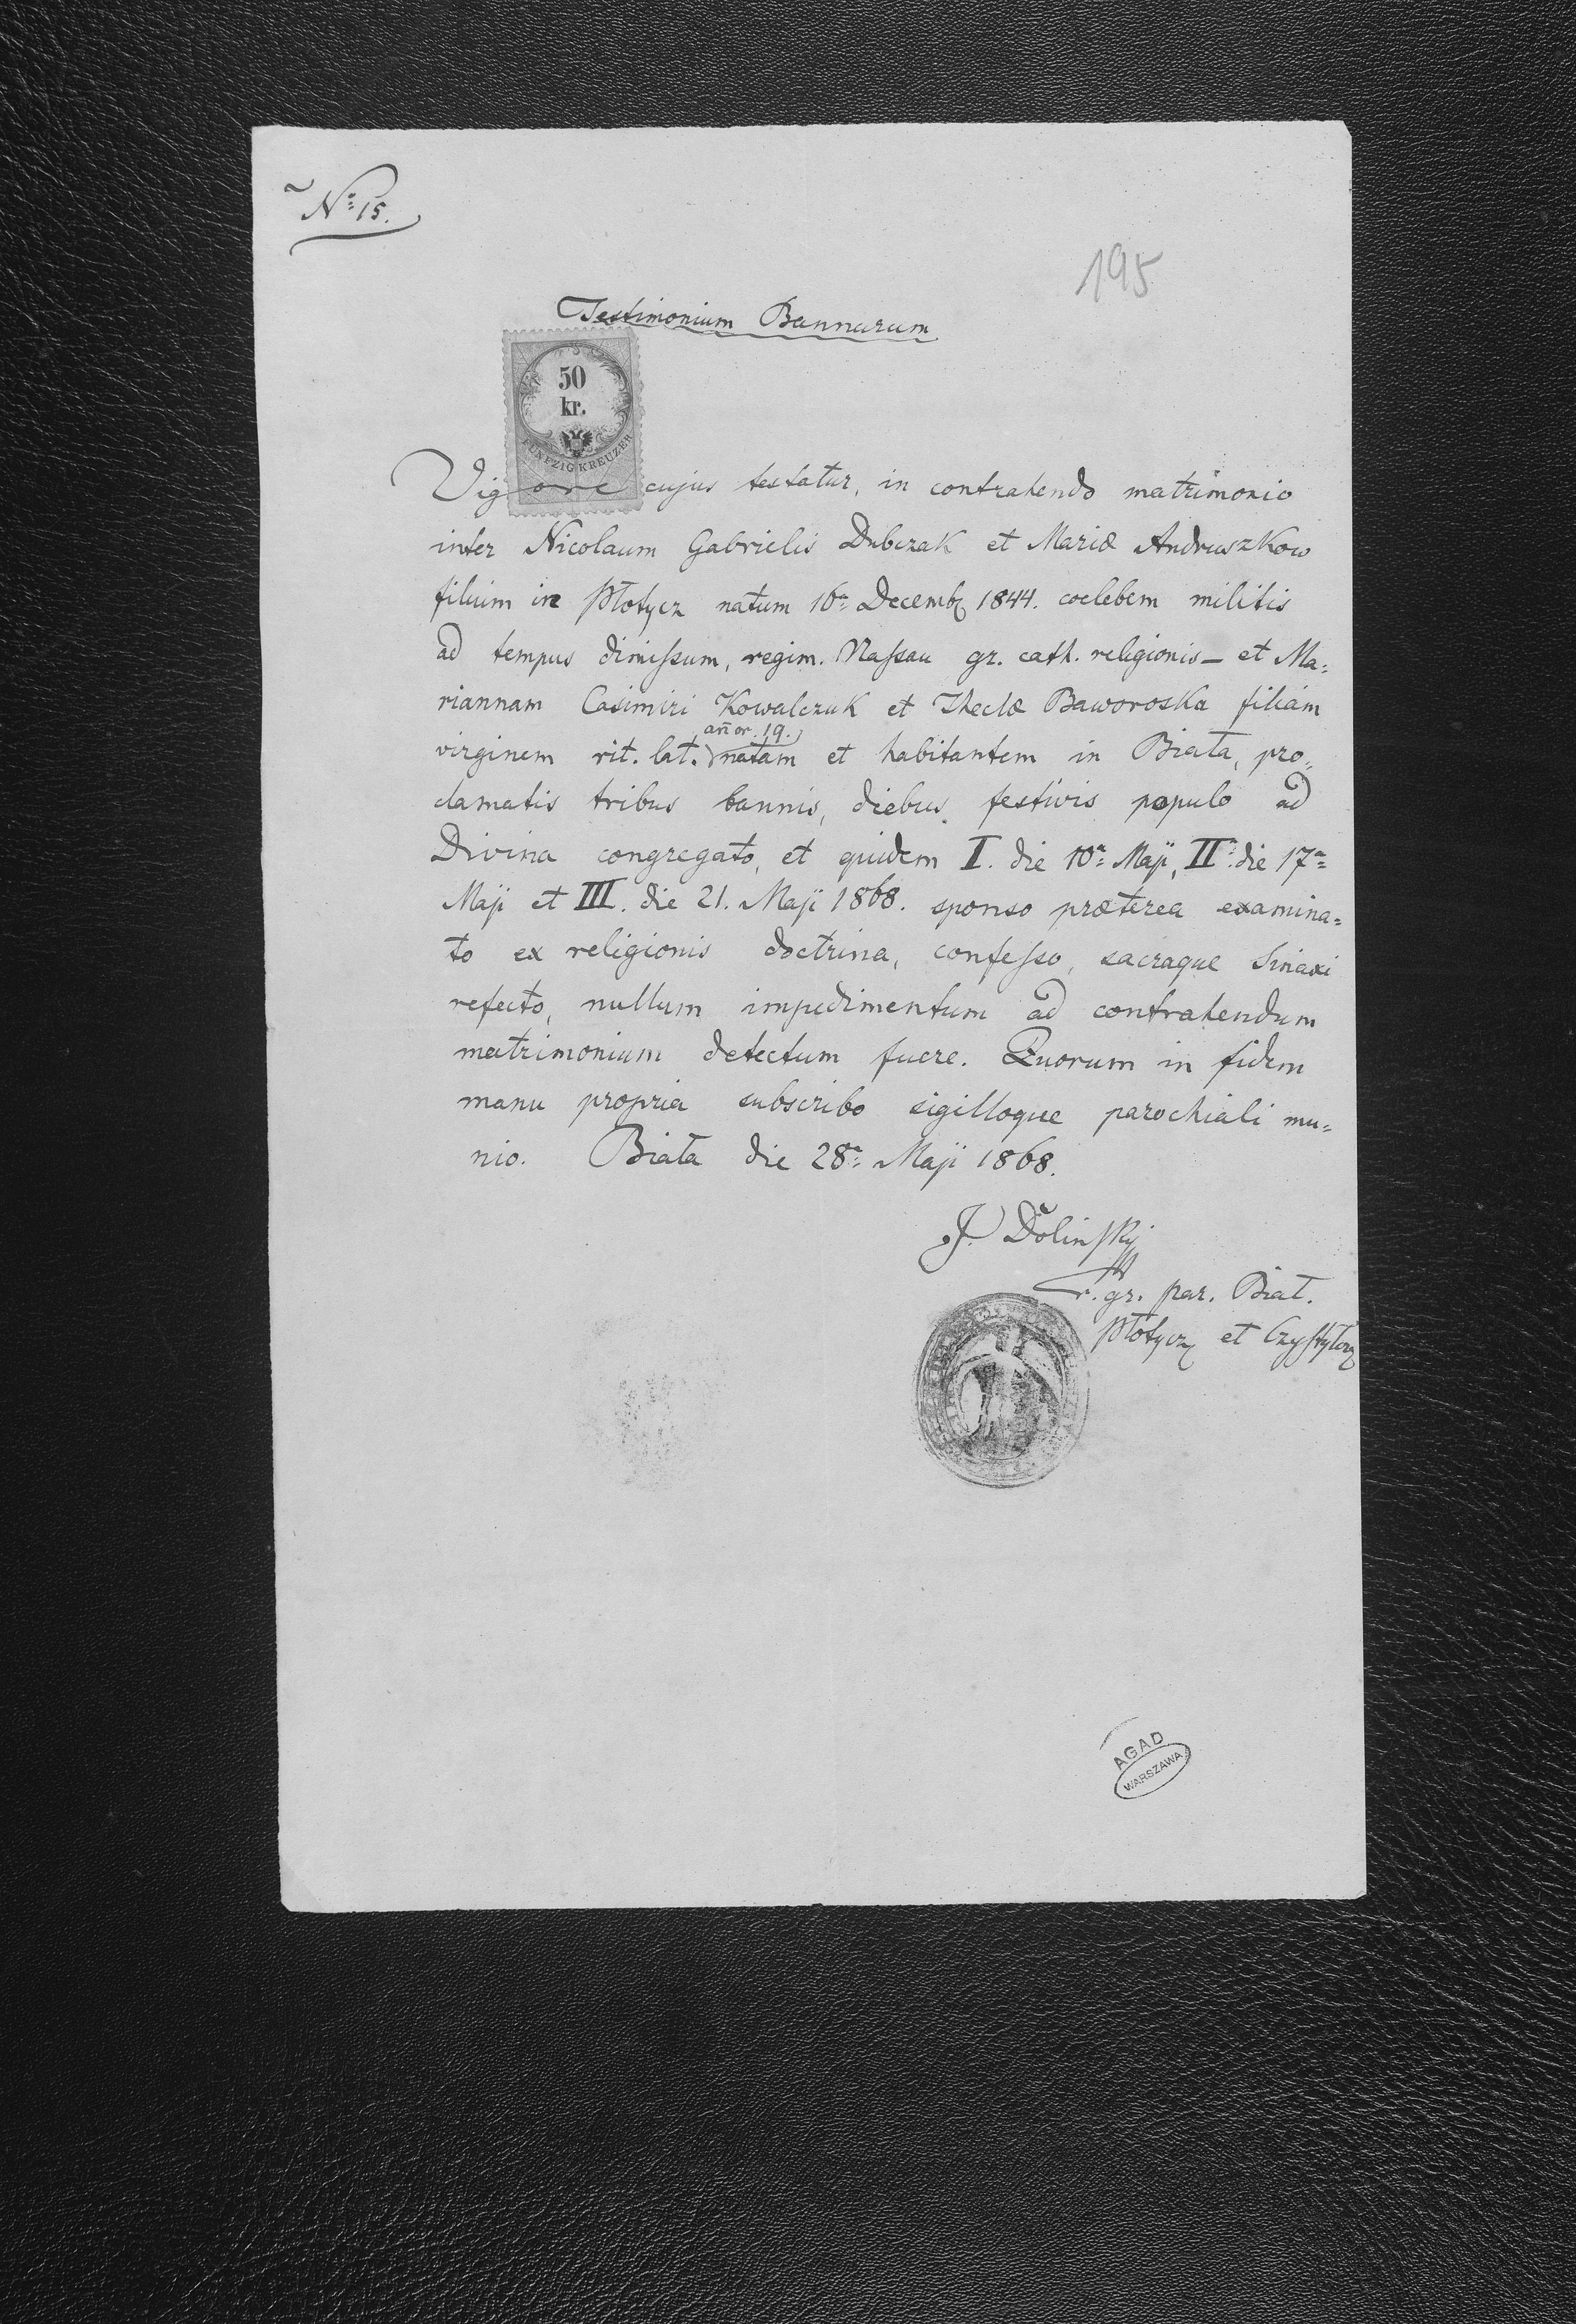 Nº 15.
195
Testimonium Bannurum
50
kr.
FÜNFZIG KREUZER
Vigore cujus testatur, in contrahendo matrimonio
inter Nicolaum Gabrielis Dubczak et Mariæ Andruszkow
filium in Płotycz natum 16ª Decemb 1844. coelebem militis
ad tempus dimissum, regim. Nassau gr. cath. religionis – et Ma=
riannam Casimiri Kowalczuk et Theclæ Baworoska filiam
añor. 19.
virginem rit. lat. natam et habitantem in Biała, pro=
clamatis tribus bannis, diebus festivis populo ad
Divina congregato, et quidem I. die 10ª Maji, II. die 17ª
Maji et III. die 21. Maji 1868. sponso præterea examina=
to ex religionis doctrina, confesso, sacraque Sinaxi
refecto, nullum impedimentum ad contrahendum
matrimonium detectum fuere. Quorum in fidem
manu propria subscribo sigilloque parochiali mu=
nio. Biała die 28ª Maji 1868.
J. Dolinskij
r. gr. par. Biał.
Płotycz et Czystyłow
AGAD
WARSZAWA